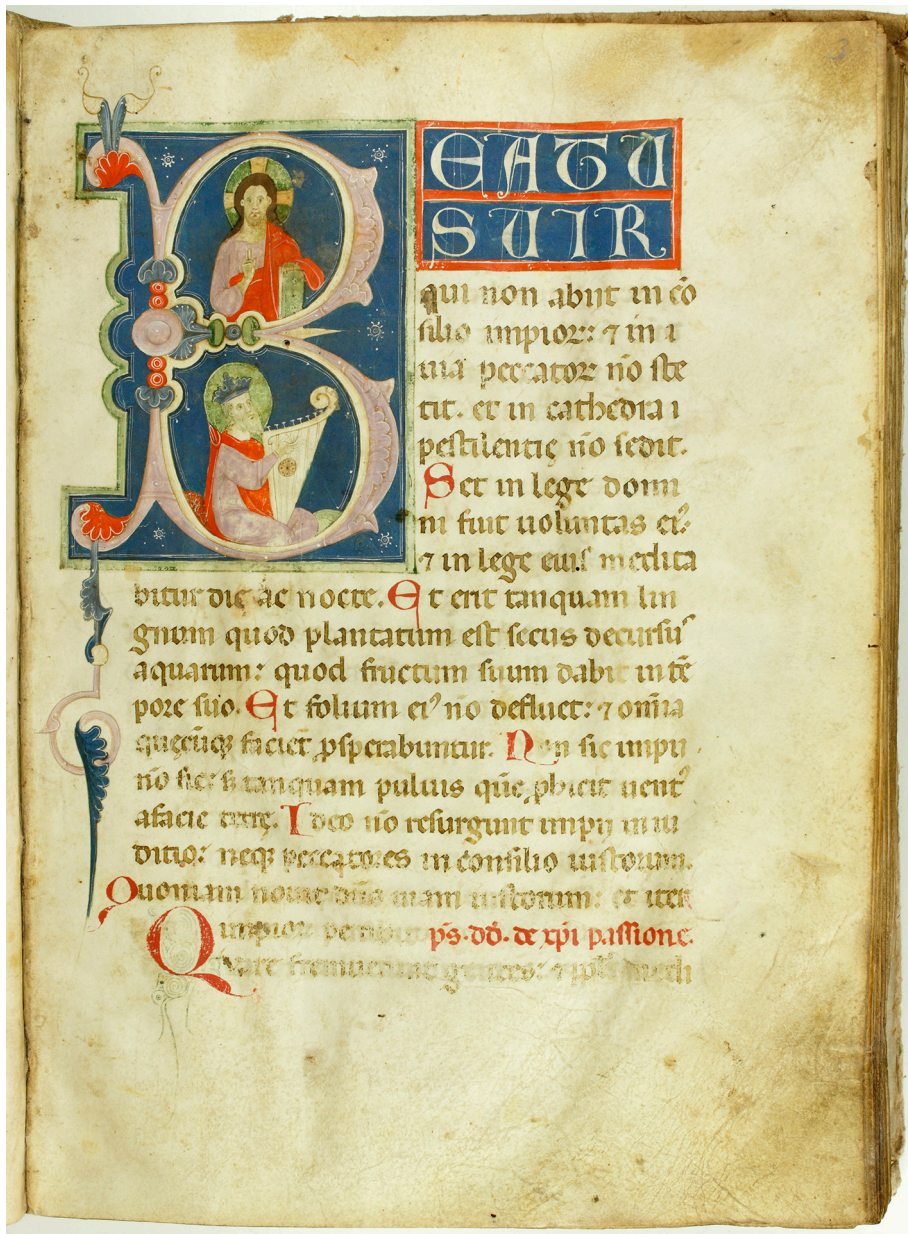 3
BEATU
S UIR
qui non abiit in cō
silio impior: ⁊ in i
uia peccatoꝝ nō ste
tit. et in cathedra i
pestilentię nō sedit.
Set in lege domi
ni fuit uoluntas eiꝰ
⁊ in lege eius medita
bitur die ac nocte. Et erit tanquam lin
gnum quod plantatum est secus decursuˢ
aquarum: quod fructum suum dabit in tē
pore suo. Et folium eiꝰ nō defluet: ⁊ om̄ia
quęcūqꝫ faciet ꝓsperabuntur. Non sic impii
nō sic: s; tanquam puluis quē ꝓhicit uentꝰ
a facie terrę. Ideo nō resurgunt impij in iu
ditio: neqꝫ peccatores in consilio iustorum.
Quoniam nouit dn̄s uiam iustorum: et iter
impioꝝ peribit. p̄s. dd̄. de xp̄i passione.
Quare fremuerunt gentes: ⁊ ppl̄i